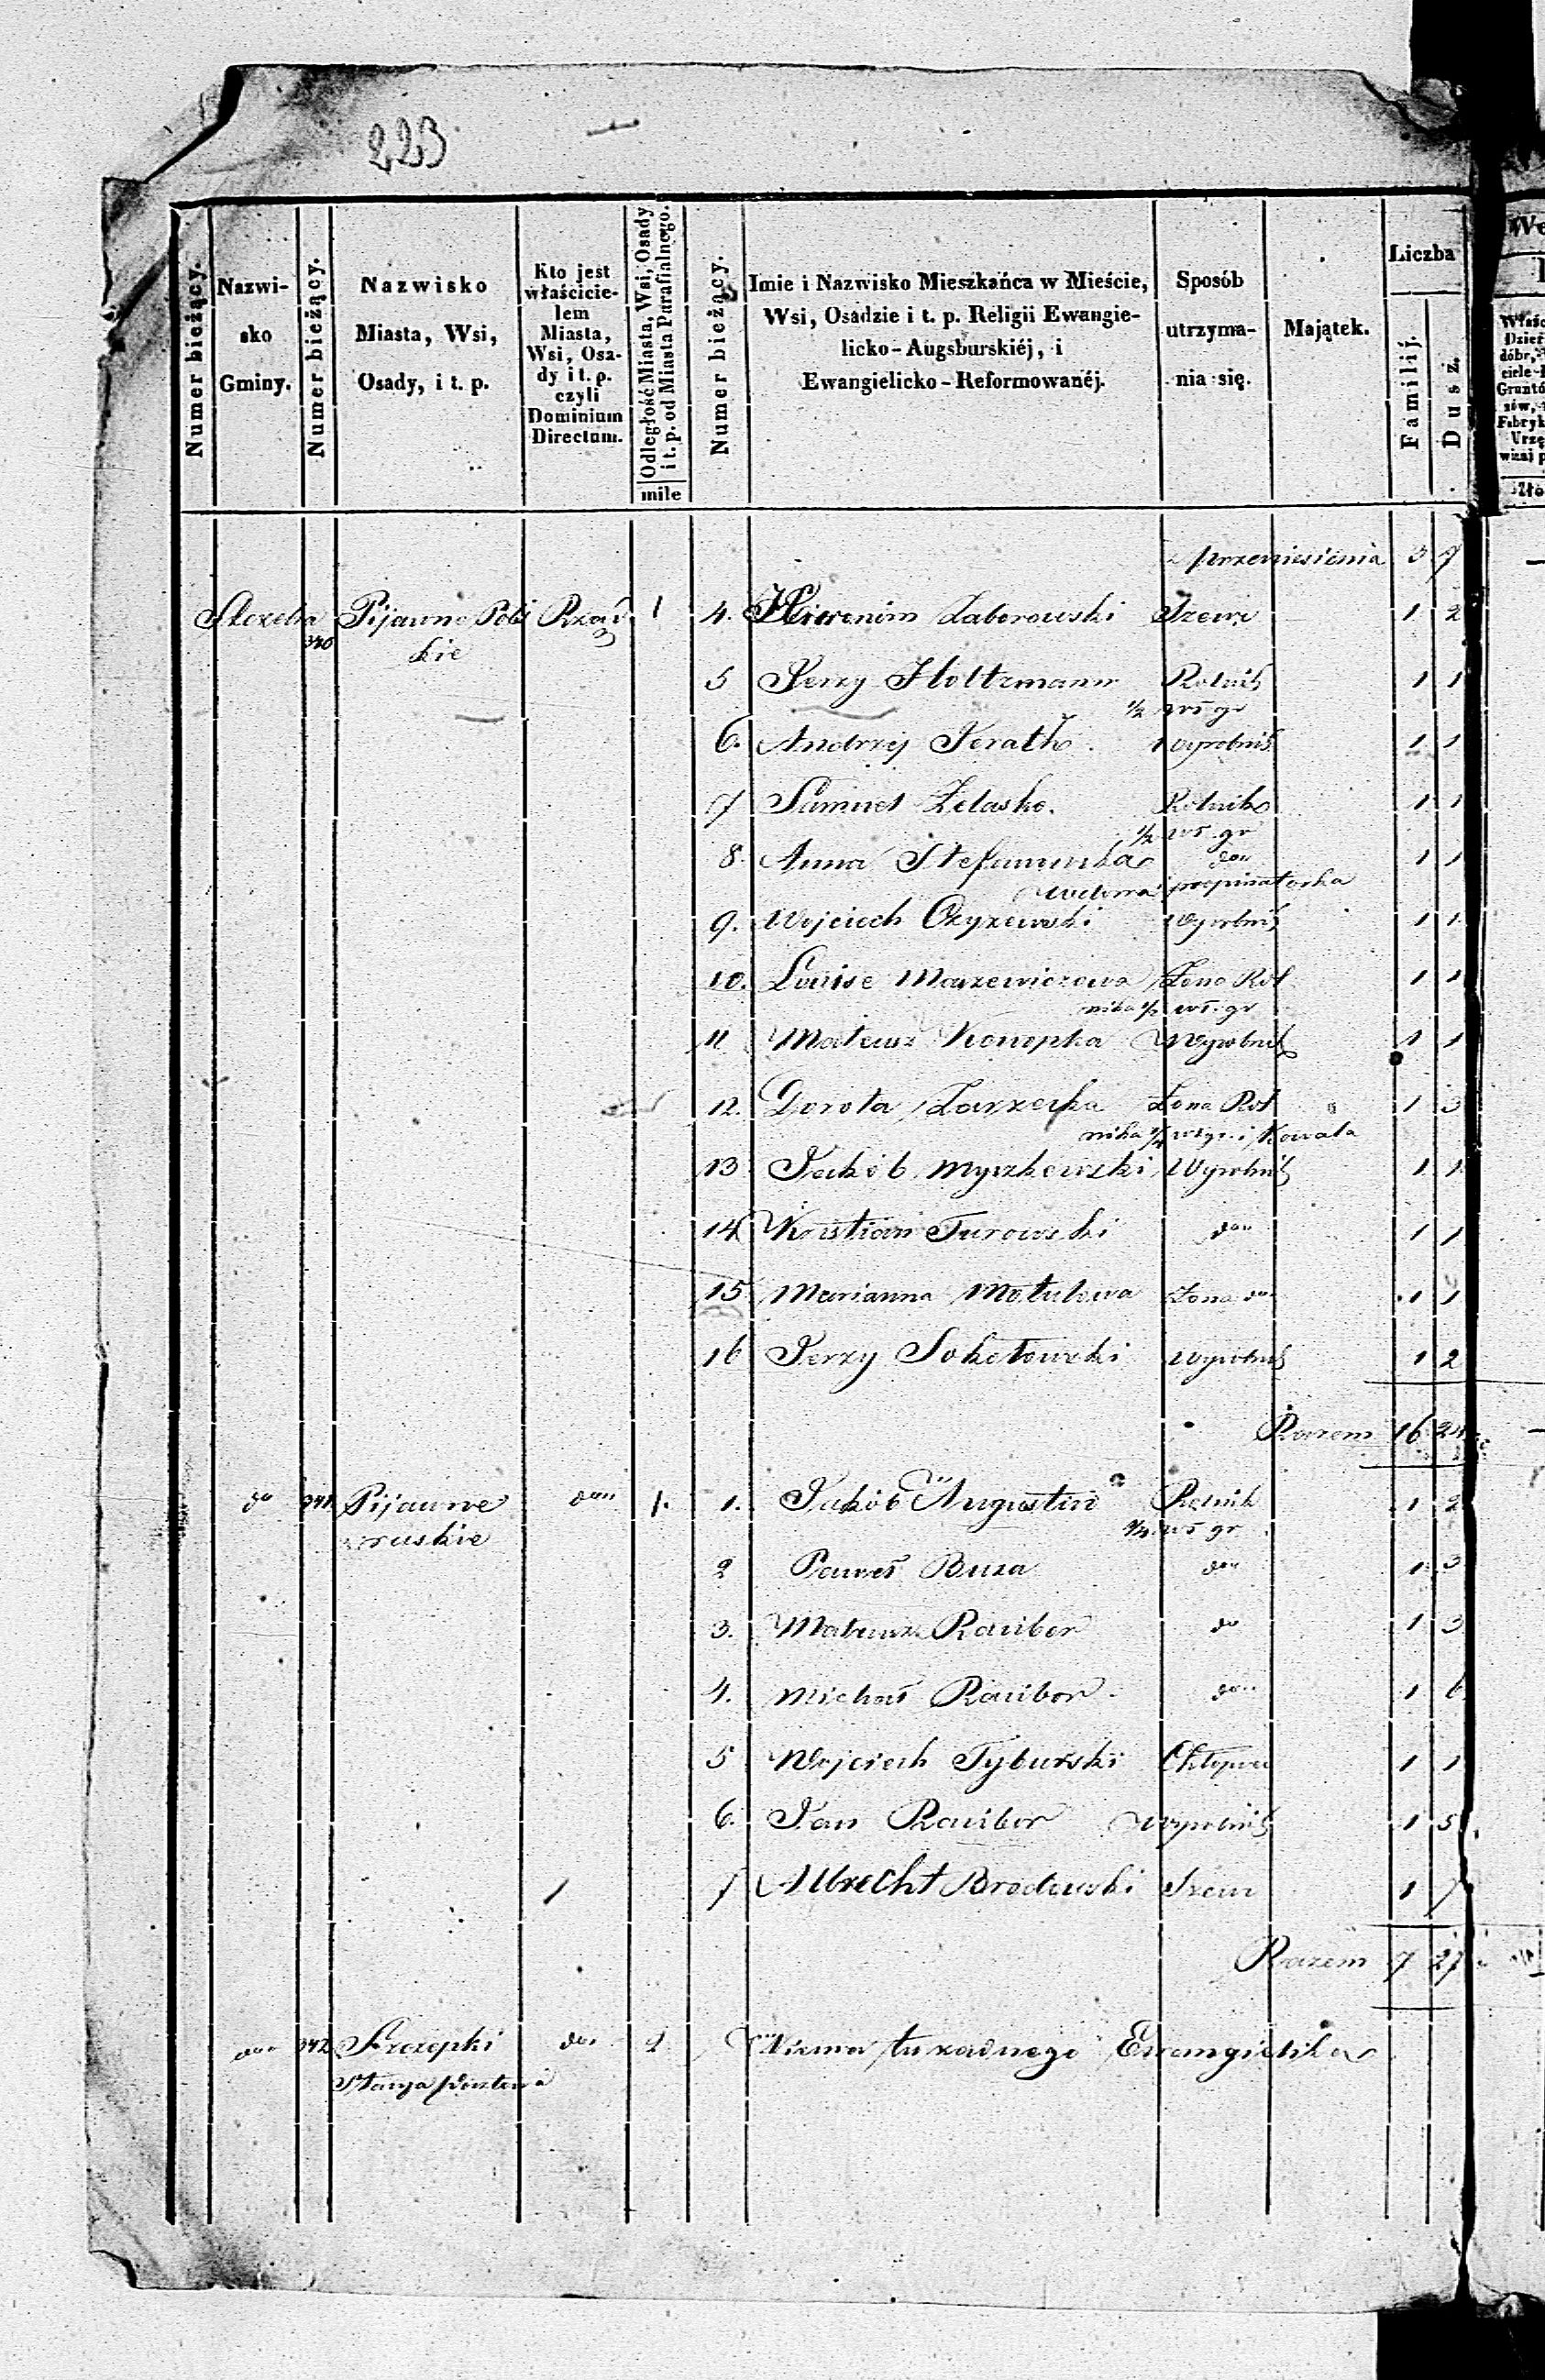 223
Numer bieżący.
Nazwisko Gminy.
Numer bieżący.
Nazwisko Miasta, Wsi, Osady, i t. p.
Kto jest właścicielem Miasta, Wsi, Osady i t. p. czyli Dominium Directum.
Odległość Miasta, Wsi, Osady i t. p. od Miasta Parafialnego.
mile
Numer bieżący.
Imie i Nazwisko Mieszkańca w Mieście, Wsi, Osadzie i t. p. Religii Ewangielicko-Augsburskiéj, i Ewangielicko-Reformowanéj.
Sposób utrzymania się.
Majątek.
Liczba
Familij.
Dusz.
z przeniesienia 3 7
340 Pijawne Pols Rząd 1 4. Hieronim Zaborowski Szewc 1 2
kie
5 Jerzy Holtzmann Rolnik 1 1
1/2 wł gr
6. Andrzej Jerath. wyrobnik 1 1
7 Samuel Zelasko. Rolnik 1 1
1/2 wł. gr
8. Anna Stefanowska do 1 1
wdowa propinatorka
9. Wojciech Czyzewski wyrobnik 1 1
10. Louise Mazewiczowa Zona Rol 1 1
nika 1/2 wł. gr
11 Mateusz Konopka Wyrobnik 1 1
12. Dorota Zarzecka Zona Rol 1 3
nika 1/4 wł gr. i Kowala
13 Jakób Myszkowski Wyrobnik 1 1
14 Kristian Turowski do 1 1
15 Marianna Motulowa Zona do 1 1
16 Jerzy Sokołowski wyrobnik 1 2
Razem 16 24
do 341 Pijawne do 1. 1. Jakób Augustin Rolnik 1 2
ruskie 1/4 wł gr
2 Paweł Buza do 1 3
3. Mateusz Raribor do 1 3
4. Michał Raribor do 1 6
5 Wojciech Tyburski Chłopiec 1 1
6. Jan Raribor wyrobnik 1 5
7 Albrecht Brodowski Szewc 1 7
Razem 7 27
do 342 Szczepki do Niema tu żadnego Ewangielika
Stacya pocztowa